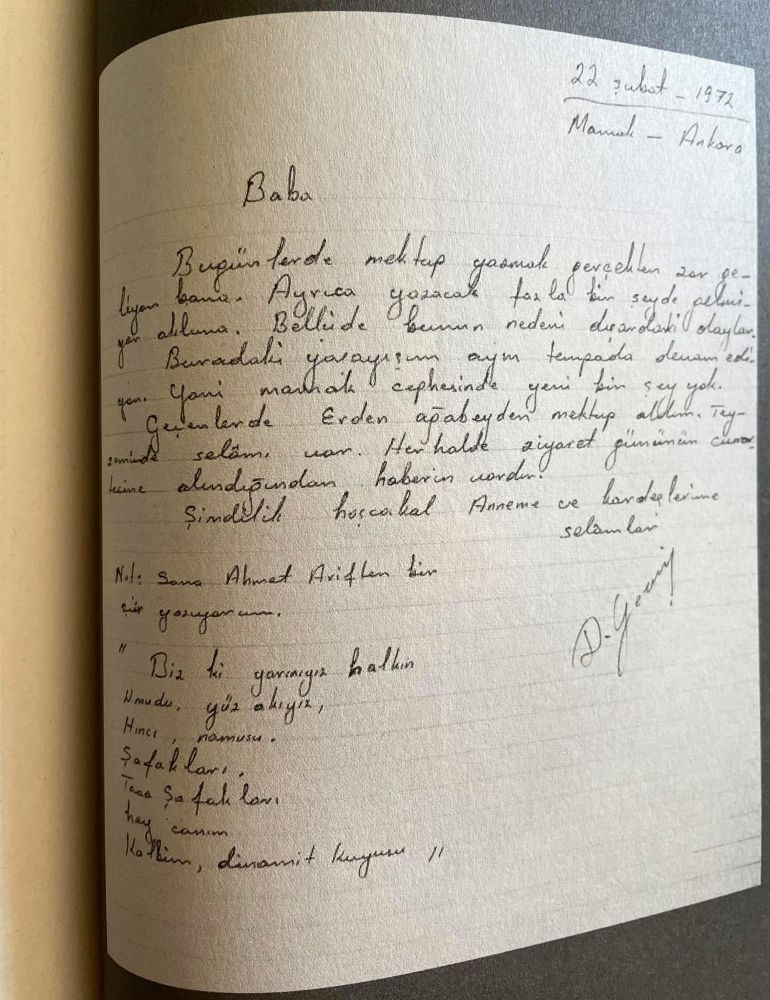 22 Şubat - 1972
Mamak - Ankara
Baba
Bugünlerde mektup yazmak gerçekten zor ge-
liyor bana. Ayrıca yazacak fazla bir şeyde gelmi-
yor aklıma. Bellide bunun nedeni dışardaki olaylar.
Buradaki yaşayışım aynı tempoda devam edi-
yor. Yani mamak cephesinde yeni bir şey yok.
Geçenlerde Erden ağabeyden mektup aldım. Tey-
zeminde selâmı var. Her halde ziyaret gününün cumar-
tesine alındığından haberin vardır.
Şimdilik hoşcakal Anneme ve kardeşlerime
selâmlar
D. Gezmiş
Not: Sana Ahmet Ariften bir
şiir yazıyorum.
" Biz ki yarınıyız halkın
Umudu, yüz akıyız,
Hıncı, namusu.
Şafakları,
Taaa Şafakları
hey canım
Kalbim, dinamit kuyusu "